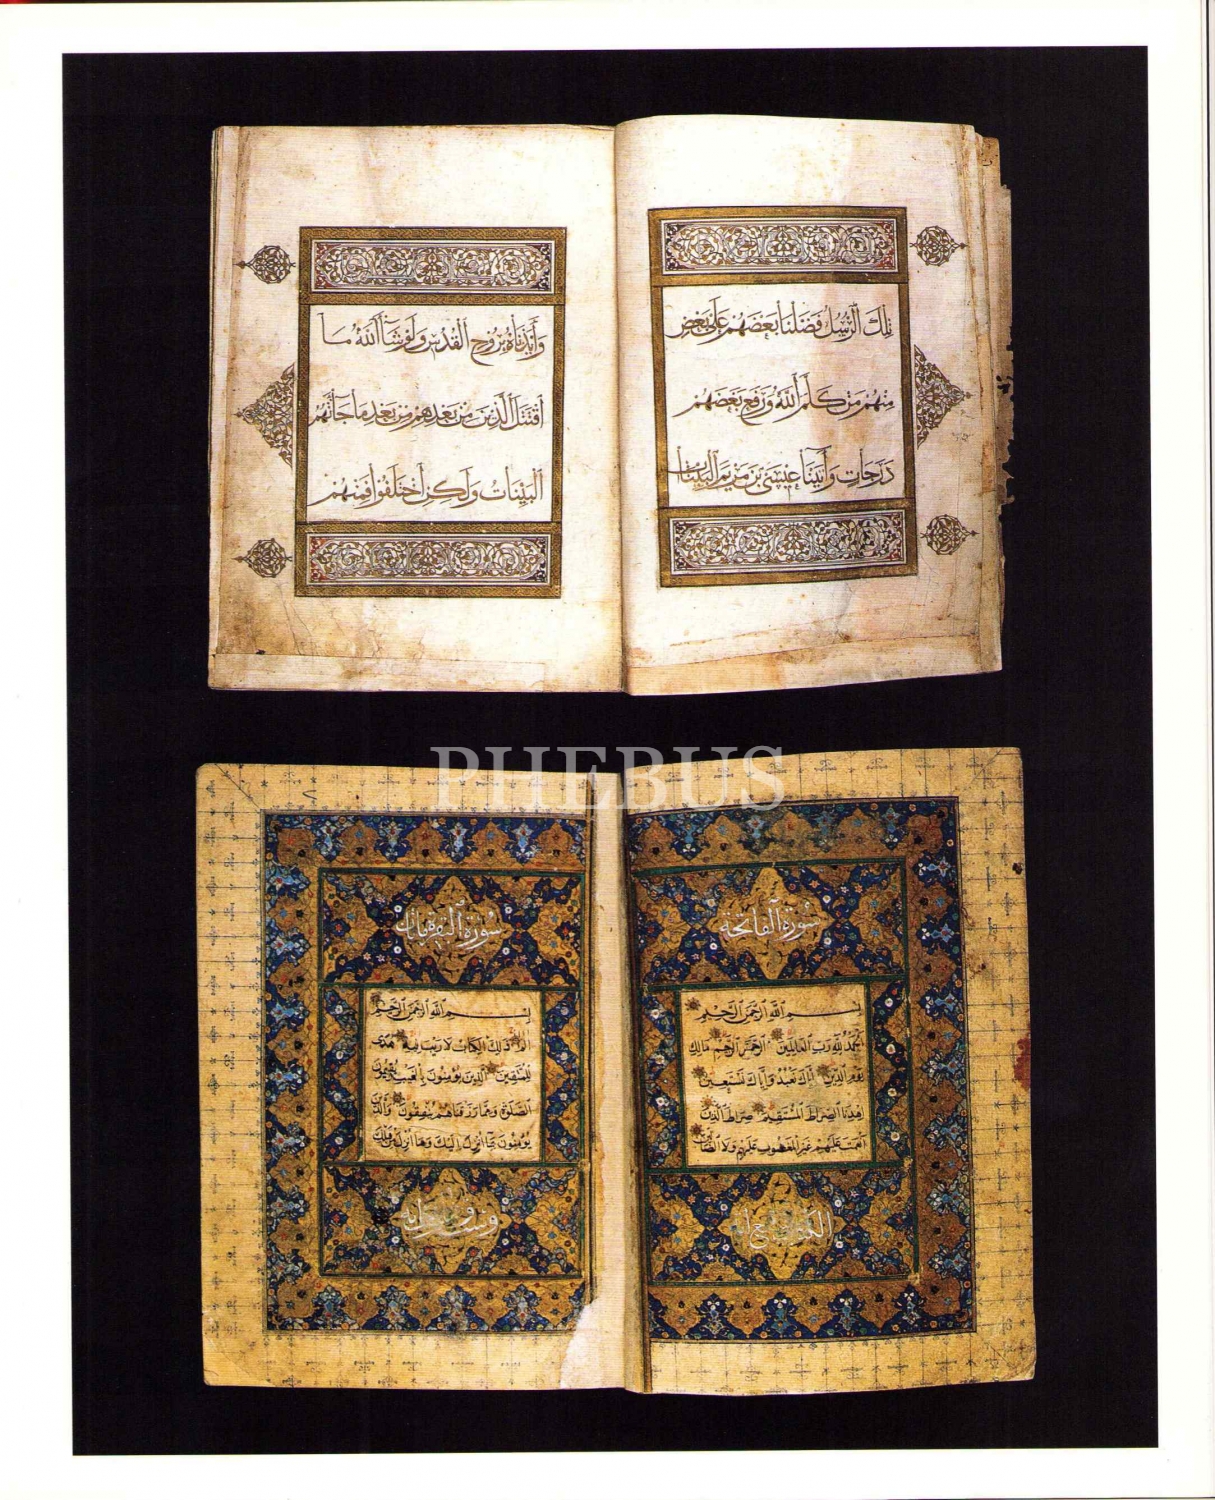 تلك الرسل فضلنا بعضهم على بعض
منهم من كلم الله ورفع بعضهم
درجات وآتينا عيسى بن مريم البينات
وأيدناه بروح القدس ولو شآء الله ما
اقتتل الذين من بعدهم من بعد ما جاءتهم
البينات ولكن اختلفوا فمنهم
PHEBUS
سورة الفاتحة
بسم الله الرحمن الرحيم
الحمد لله رب العالمين الرحمن الرحيم مالك
يوم الدين إياك نعبد وإياك نستعين
اهدنا الصراط المستقيم صراط الذين
أنعمت عليهم غير المغضوب عليهم ولا الضالين
سورة البقرة
بسم الله الرحمن الرحيم
الم ذلك الكتاب لا ريب فيه هدى
للمتقين الذين يؤمنون بالغيب ويقيمون
الصلوة ومما رزقناهم ينفقون والذين
يؤمنون بما أنزل إليك وما أنزل من قبلك